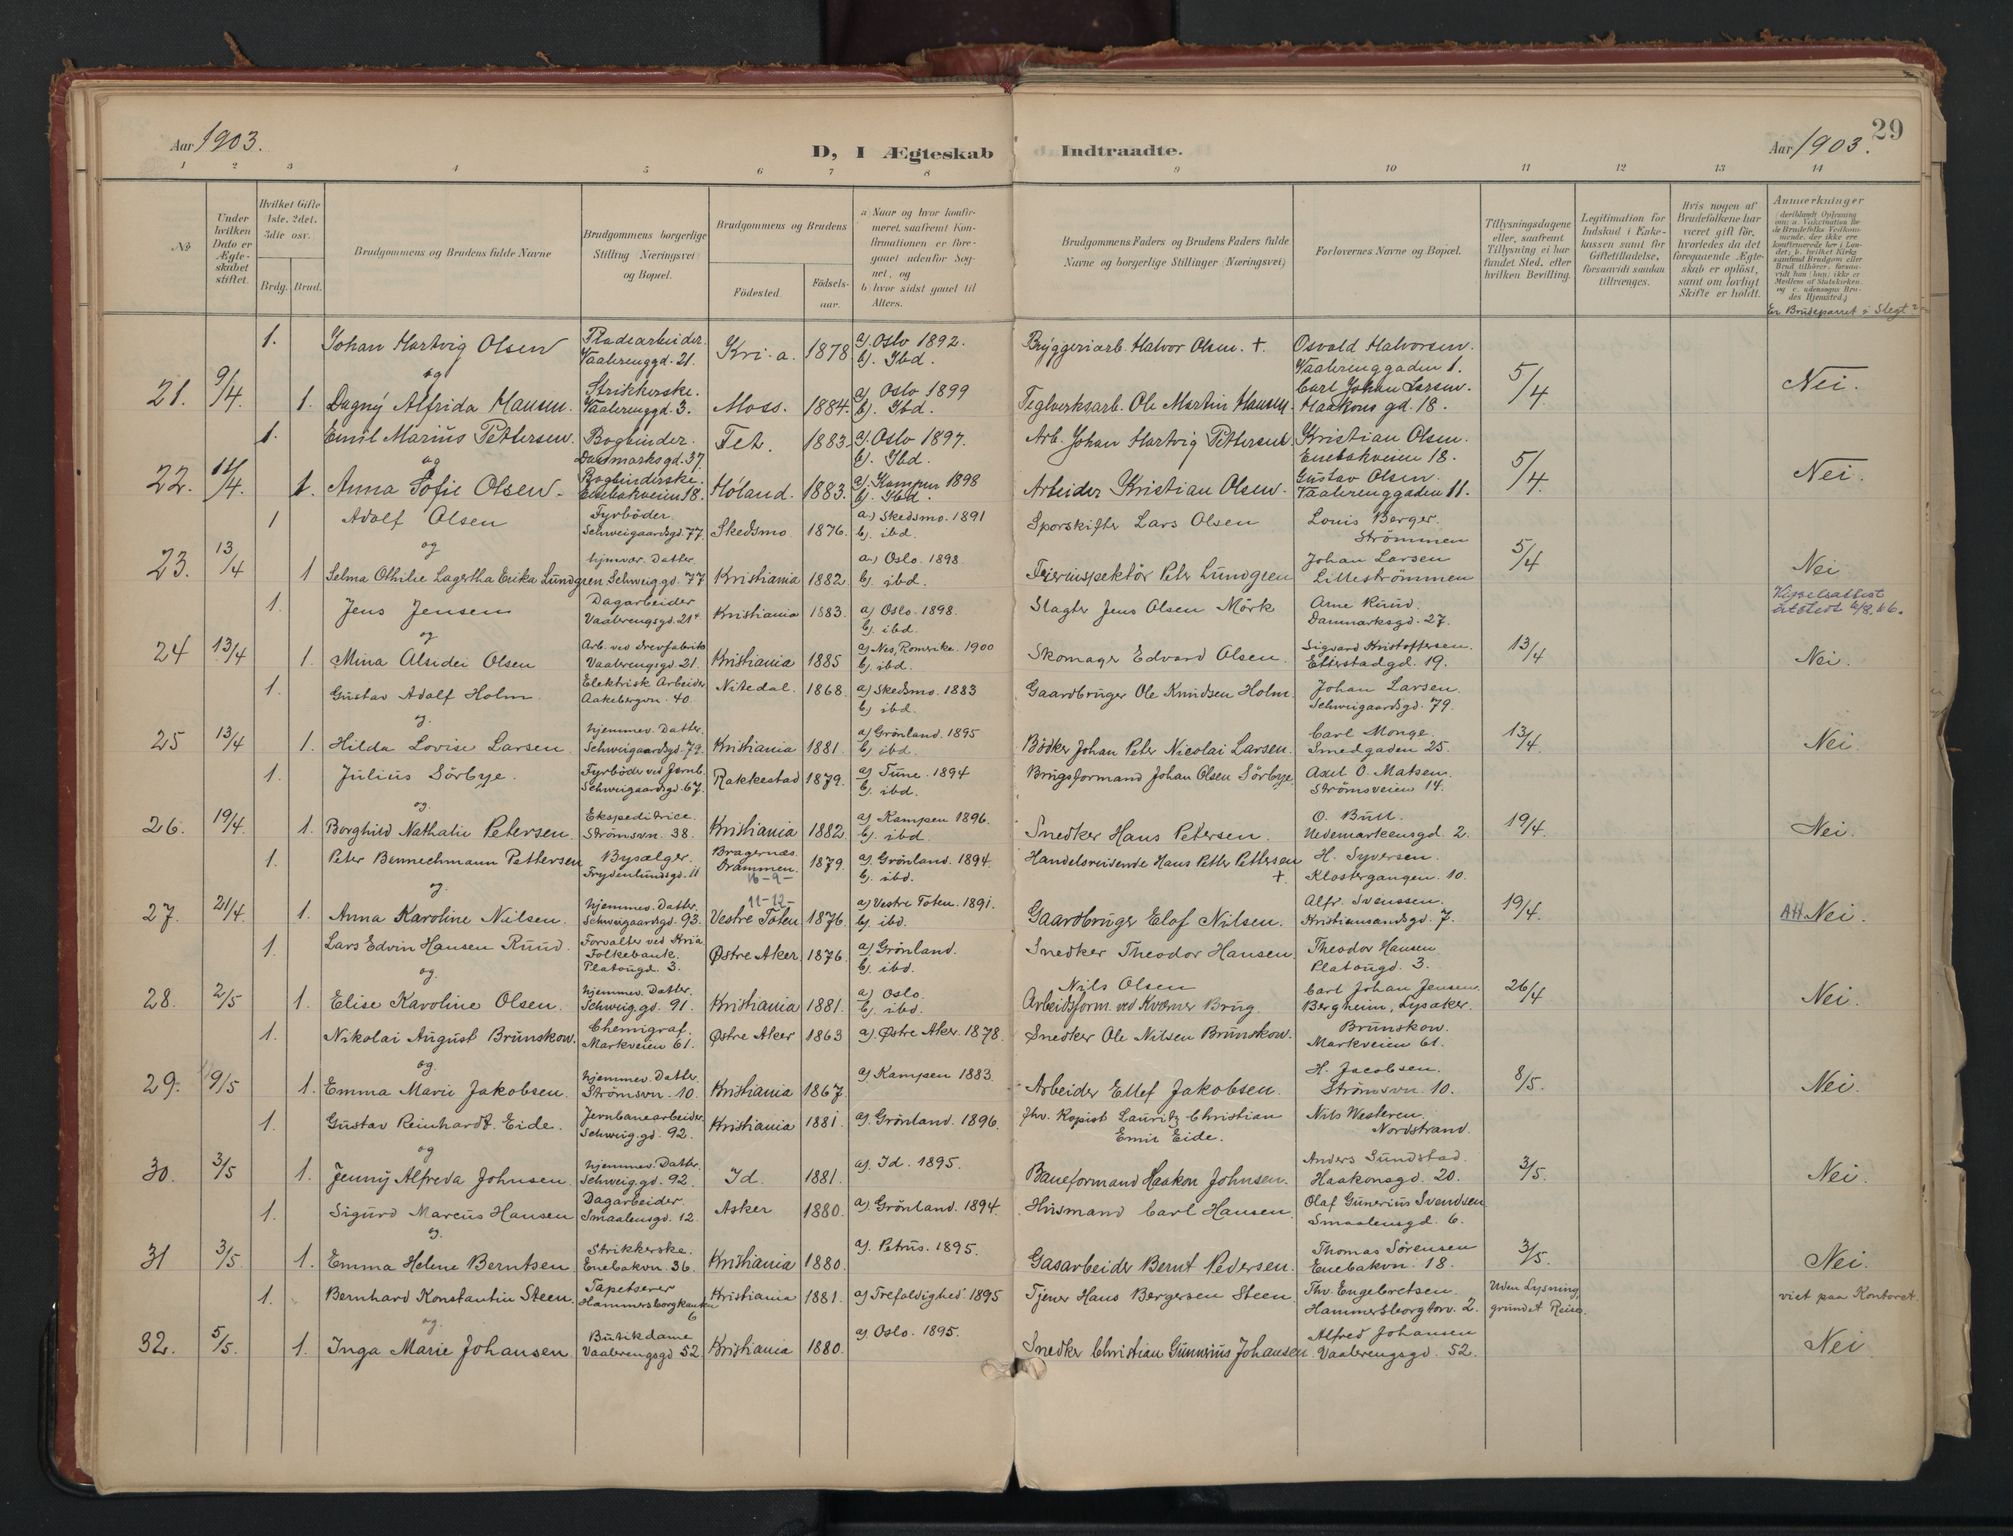 29
Aar 1903.
D, I Ægteskab Indtraadte.
Aar 1903.
1 2 3 4 5 6 7 8 9 10 11 12 13 14
No
Under hvilken Dato er Ægteskabet stiftet.
Hvilket Gifte 1ste. 2det. 3die osv.
Brdg. Brud.
Brudgommens og Brudens fulde Navne
Brudgommens borgerlige Stilling (Næringsvei) og Bopæl.
Brudgommens og Brudens
Fødested. Fødselsaar.
a) Naar og hvor konfirmeret, saafremt Konfirmationen er foregaaet udenfor Sognet, og
b) hvor sidst gaaet til Alters.
Brudgommens Faders og Brudens Faders fulde Navne og borgerlige Stillinger (Næringsvei)
Forlovernes Navne og Bopæl.
Tillysningsdagene eller, saafremt Tillysning ei har fundet Sted, efter hvilken Bevilling.
Legitimation for Indskud i Enkekassen samt for Giftetilladelse, forsaavidt saadan tiltrænges.
Hvis nogen af Brudefolkene har været gift før, hvorledes da det foregaaende Ægteskab er opløst, samt om lovligt Skifte er holdt.
Anmerkninger
Er Brudeparret i Slegt?
1. Johan Hartvig Olsen Pladearbeider. Vaalerenggd. 21. Kri-a. 1878 a). Oslo 1892. b). Ibd. Bryggeriarb. Halvor Olsen. + Osvald Halvorsen. Vaalerenggaden 1.
og
21. 9/4 1. Dagny Alfrida Hansen. Strikkerske. Vaalerenggd. 3. Moss. 1884. a). Oslo 1899 b). Ibd. Teglverksarb. Ole Martin Hansen. Carl Johan Larsen. Haakons gd. 18. 5/4 Nei.
1. Emil Marius Pettersen. Bogbinder. Danmarksgd. 37 Fet. 1883. a). Oslo 1897. b). Ibd. Arb. Johan Hartvig Pettersen Kristian Olsen. Enebakveien 18.
og
22. 11/4 1. Anna Sofie Olsen. Bogbinderske. Enebakveien 18. Høland. 1883. a). Kampen 1898 b). Ibd. Arbeider Kristian Olsen. Gustav Olsen. Vaalerenggaden 11. 5/4 Nei.
1 Adolf Olsen Fyrbøder. Schweigaardsgd. 77. Skedsmo 1876. a.) Skedsmo. 1891 b). ibd. Sporskifter Lars Olsen Louis Berger. Strømmen
og
23. 13/4 1 Selma Othilie Lagertha Erika Lundgren hjmvær. Datter. Schweiggd. 77 Kristiania 1882. a.) Oslo. 1898. b). ibd. Feierinspektør Peter Lundgren Johan Larsen Lillestrømmen 5/4 Nei
1. Jens Jensen Dagarbeider Vaalerengsgd. 21 4 Kristiania 1883. a) Oslo. 1898. b). ibd. Slagter Jens Olsen Mörk Arne Ruud. Danmarksgd. 27.
og
24 13/4 1. Mina Alsidei Olsen Arb. ved Drevfabrik Vaalerengsgd. 21. Kristiania 1885 a) Nes, Romerike. 1900 b). ibd. Skomager Edvard Olsen. Sigvard Kristoffersen. Etterstadgd. 19. 13/4 Nei.
1. Gustav Adolf Holm. Elektrisk Arbeider Aakebergvn. 40. Nitedal. 1868. a) Skedsmo. 1883 b) ibd. Gaardbruger Ole Knudsen Holm. Johan Larsen. Schweigaardsgd. 79.
og.
25 13/4 1. Hilda Lovise Larsen. hjemmev. Datter. Schweigaardsgd. 79. Kristiania 1881. a) Grönland. 1895 b) ibd. Bödker Johan Peter Nicolai Larsen. Carl Monge. Smedgaden 25. 13/4 Nei.
1. Julius Sörbye. Fyrböder ved Jernb. Schweigaardsgd. 67. Rakkestad 1879. a) Tune. 1894 b). ibd. Brugsformand Johan Olsen Sörbye Axel O. Matsen. Strömsveien 14.
og.
26. 19/4 1. Borghild Nathalie Petersen. Ekspeditrice. Strömsvn. 38. Kristiania 1882. a) Kampen 1896. b). ibd. Snedker Hans Petersen. O. Bull. Hedemarkensgd. 2. 19/4. Nei.
1. Peter Bennechmann Pettersen Bysælger. Frydenlundsgd. 11 Bragernæs. Drammen. 16-9- 1879. a). Grönland. 1894. b). ibd. Handelsreisende Hans Petter Pettersen + H. Syversen. Klostergangen. 10.
og.
27. 21/4 1. Anna Karoline Nilsen. hjemmev. Datter. Schweigaardsgd. 93. 11-12- Vestre Toten 1876. a) Vestre Toten. 1891. b). ibd. Gaardbruger Elof Nilsen. Alfr. Svenssen. Kristiansandsgd. 7. 19/4. AH Nei.
1. Lars Edvin Hansen Ruud. Forvalter ved Kria Folkebank. Platougd. 3. Østre Aker. 1876. a) Grönland. b). ibd. Snedker Theodor Hansen. Theodor Hansen Platougd. 3.
og
28. 2/5 1. Elise Karoline Olsen. hjemmev. Datter. Schweig. gd. 91. Kristiania 1881. a) Oslo. b). ibd. Nils Olsen Arbeidsform. ved Kværner Brug Carl Johan Jensen. Bergheim, Lysaker. 26/4 Nei.
1. Nikolai August Brunskow. Chemigraf. Markveien 61. Østre Aker 1863 a). Østre Aker. 1878. Snedker Ole Nilsen Brunskow. Brunskow. Markveien 61.
og.
29. 9/5 1. Emma Marie Jakobsen. hjemmev. Datter. Strömsvn. 10. Kristiania 1867. a) Kampen 1883. Arbeider Ellef Jakobsen. H. Jacobsen. Strömsvn 10. 8/5. Nei.
1. Gustav Reinhardt. Eide. Jernbanearbeider. Schweig. gd. 92. Kristiania 1881. a). Grönland. 1896. fhv. Kopist Lauritz Christian Emil Eide. Nils Westeren. Nordstrand.
og
30. 3/5 1. Jenny Alfreda Johnsen. hjemmev. Datter. Schweig. gd. 92 Id. 1881. a). Id. 1895. Baneformand Haakon Johnsen. Anders Sundstad. Haakonsgd. 20. 3/5. Nei.
1. Sigurd Marcus Hansen Dagarbeider. Smaalensgd. 12. Asker 1880. a). Grönland. 1894. Husmand Carl Hansen. Olaf Gunerius Svendsen Smaalensgd. 6.
og.
31 3/5 1. Emma Helene Berntsen Strikkerske. Enebakvn 36. Kristiania 1880. a). Petrus. 1895. Gasarbeider Bernt Pedersen. Thomas Sörensen Enebakvn. 18. 3/5. Nei.
1. Bernhard Konstantin Steen. Tapetserer Hammersborgkanten 6 Kristiania 1881. a) Trefoldighed 1895 Tjener Hans Bergersen Steen Thv. Engebretsen. Hammersborgtorv. 2. Uden Lysning, grundet Reise. viet paa Kontoret.
og.
32. 5/5. 1. Inga Marie Johansen. Butikdame Vaalerengsgd 52 Kristiania 1880. a). Oslo. 1895. Snedker Christian Gunerius Johansen Alfred Johansen Vaalerengsgd. 52. Nei.